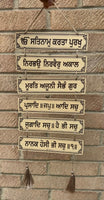 ੴ ਸਤਿਨਾਮੁ ਕਰਤਾ ਪੁਰਖੁ
ਨਿਰਭਉ ਨਿਰਵੈਰੁ ਅਕਾਲ
ਮੂਰਤਿ ਅਜੂਨੀ ਸੈਭੰ ਗੁਰ
ਪ੍ਰਸਾਦਿ ॥ਜਪੁ॥ ਆਦਿ ਸਚੁ
ਜੁਗਾਦਿ ਸਚੁ॥ ਹੈ ਭੀ ਸਚੁ
ਨਾਨਕ ਹੋਸੀ ਭੀ ਸਚੁ॥੧॥